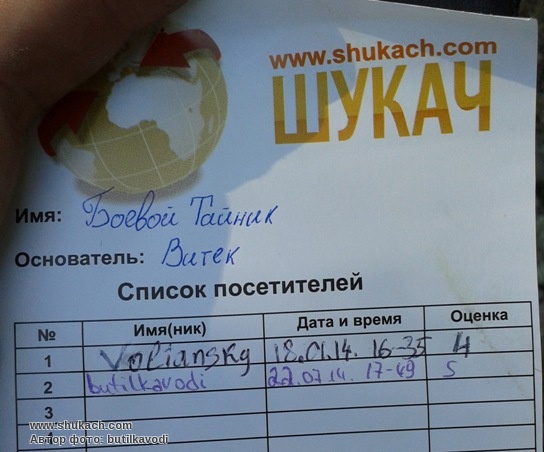 www.shukach.com
ШУКАЧ
Имя: Боевой Тайник
Основатель: Витек
Список посетителей
№ Имя(ник) Дата и время Оценка
1 Voliansky 18.01.14. 16-35 4
2 butilkavodi 22.07.14. 17-49 5
3
www.shukach.com
Автор фото: butilkavodi